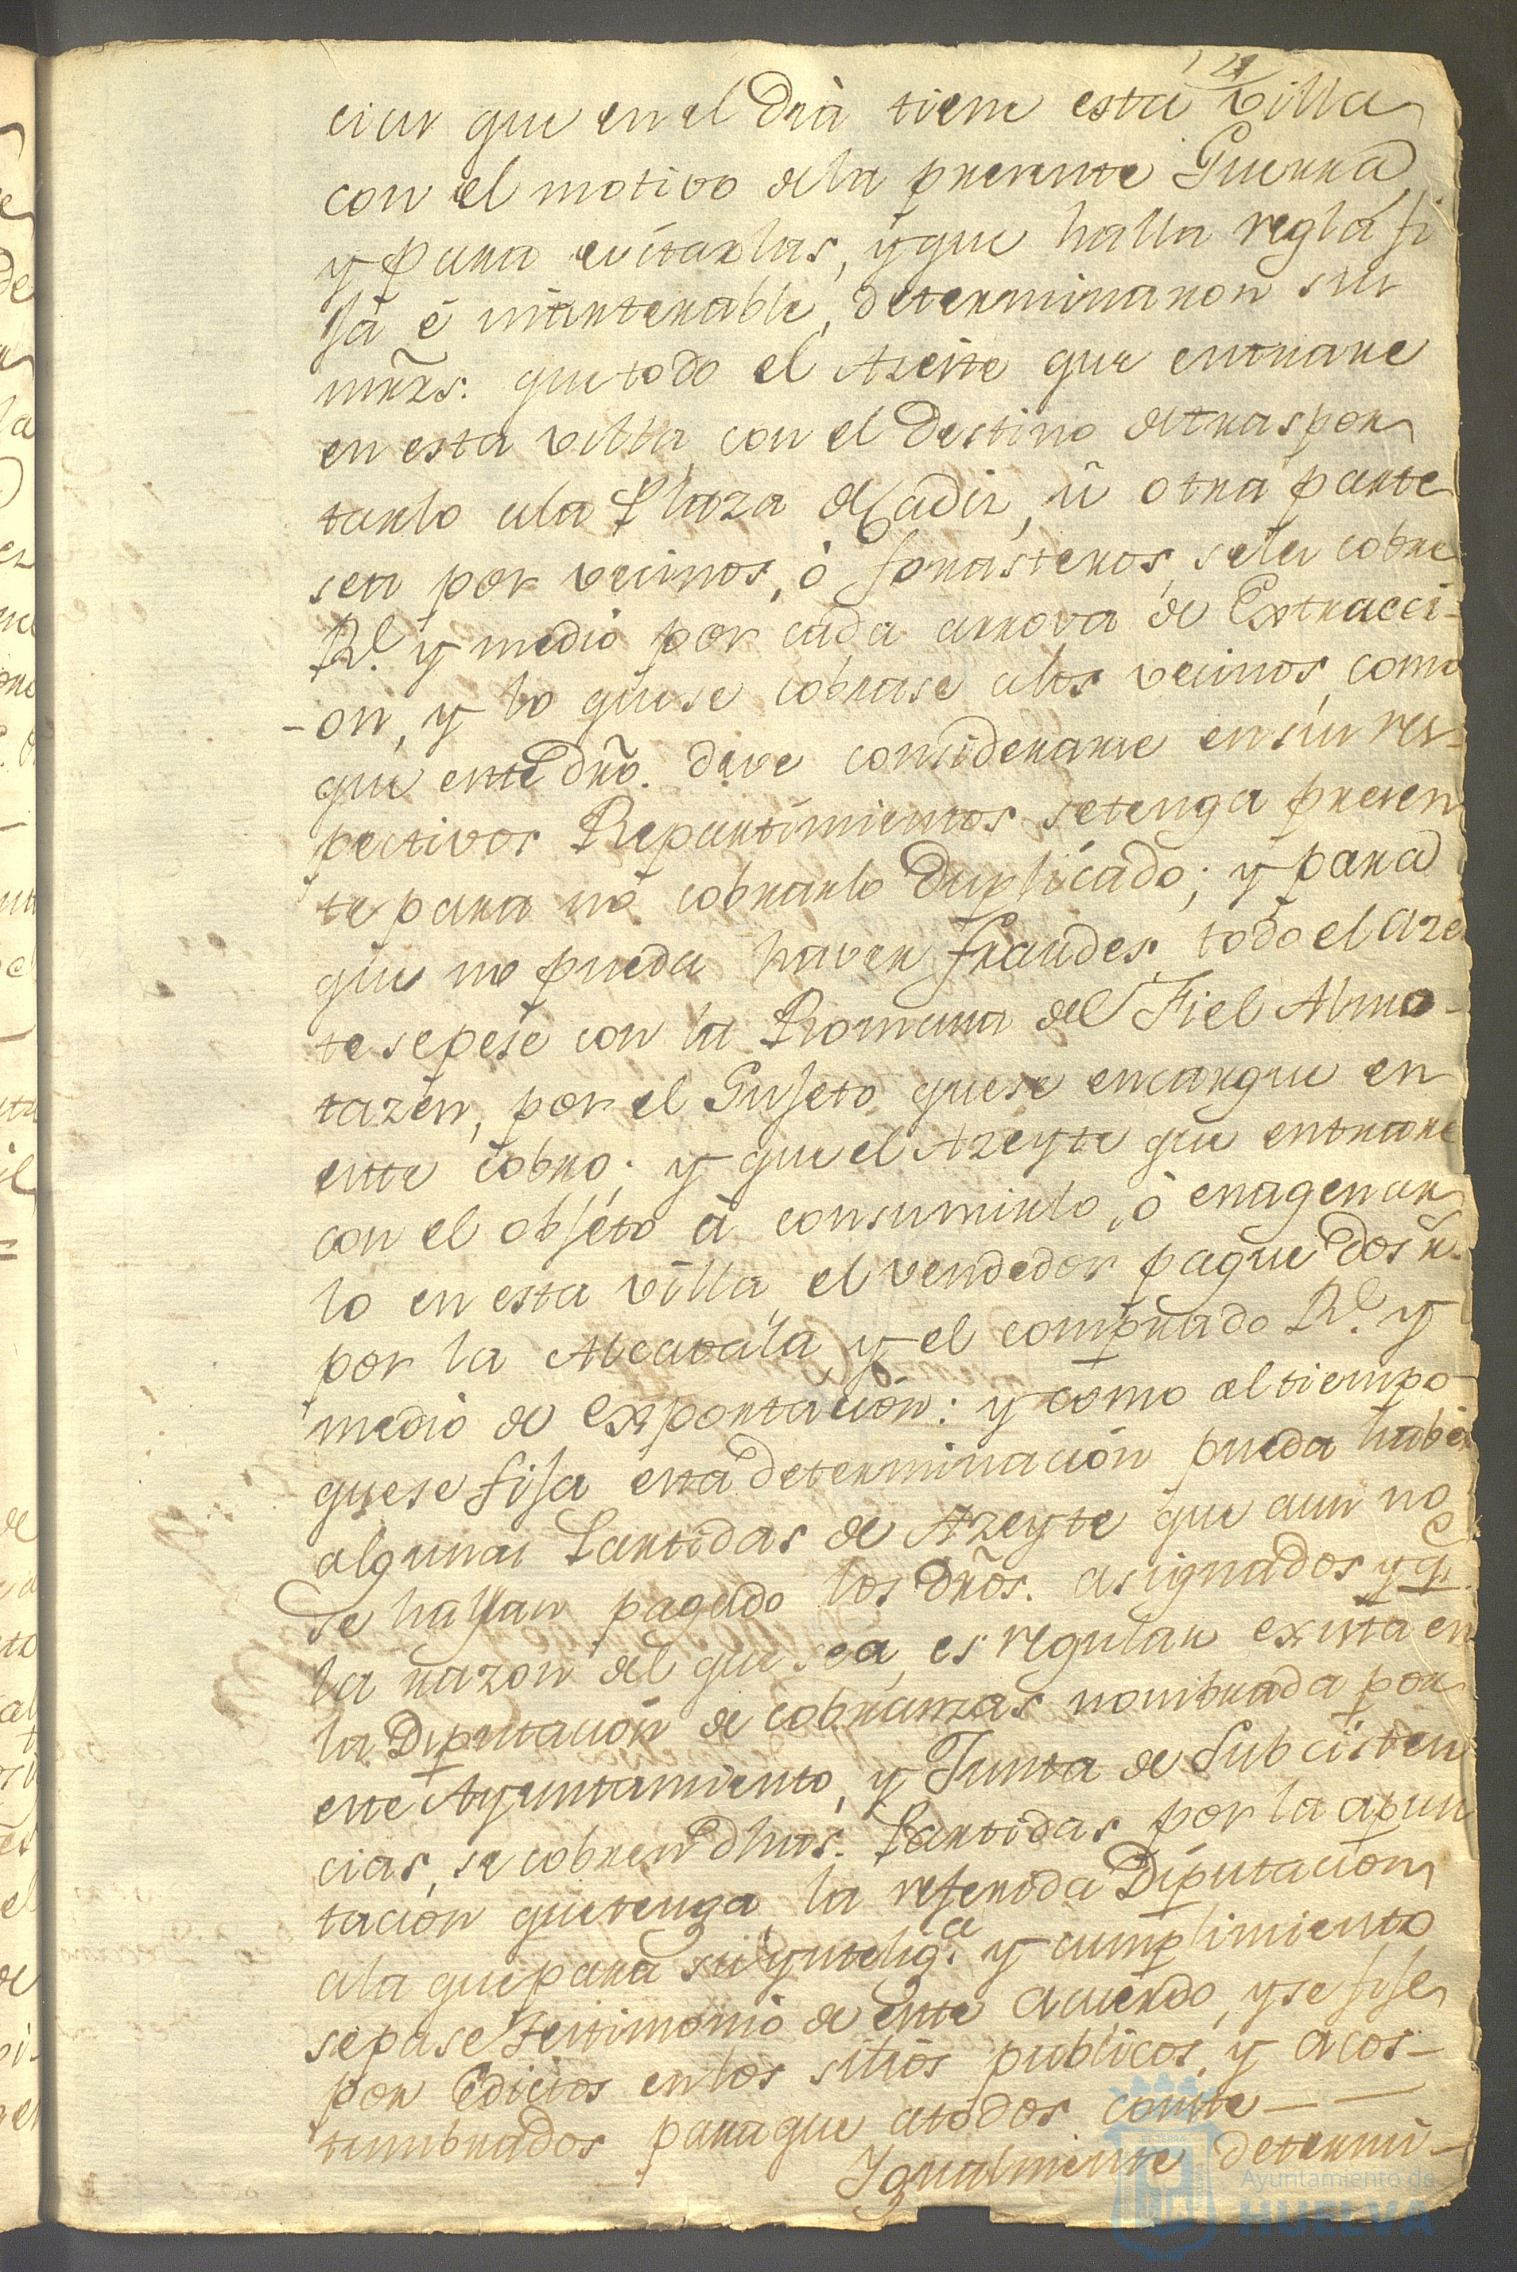 14
cias que en el Dia tiene esta Villa
con el motivo dela presente Guerra
y para evitarlas, y que halla regla fi
ja é inalterable, determinaron sus
mrzs. que todo el Azeite que entrare
en esta villa con el destino detraspor
tarlo ala Plaza de Cadiz, ú otra parte
sea por vecinos, ó forasteros, seles cobre
Rl. y medio por cada arrova de Extracci-
-on, y lo que se cobrase alos vecinos, como
que este dro. deve considerarse en sus res-
pectivos Repartimientos setenga presen
te para no cobrarlo Duplicado; y para
que no pueda haver fraudes, todo el aze
te sepese con la Romana del Fiel Almo-
tazén, por el Sujeto quese encargue en
este cobro; y que el Azeyte que entrare
con el objeto á consumirlo, ó enagenar
lo en esta villa el vendedor pague dos r.
por la Alcavala, y el comprado Rl. y
medio de exportación: y como al tiempo
quese fija esta determinación pueda haber
algunas Partidas de Azeyte que aun no
se hallan pagado los dros. asignados y qe.
la razon del que sea, es regular exista en
la Diputación de cobranzas nombrada por
este Ayuntamiento, y Junta de Subcisten
cias, se cobren dhas. Partidas por la apun
tación quetenga la referida Diputacion
ala que para su ynteliga. y cumplimiento
sepase testimonio de este acuerdo, y se fije
por Edictos en los sitios publicos, y acos-
tumbrados para que atodos conste - -
Ygualmente determi-
Ayuntamiento de
HUELVA